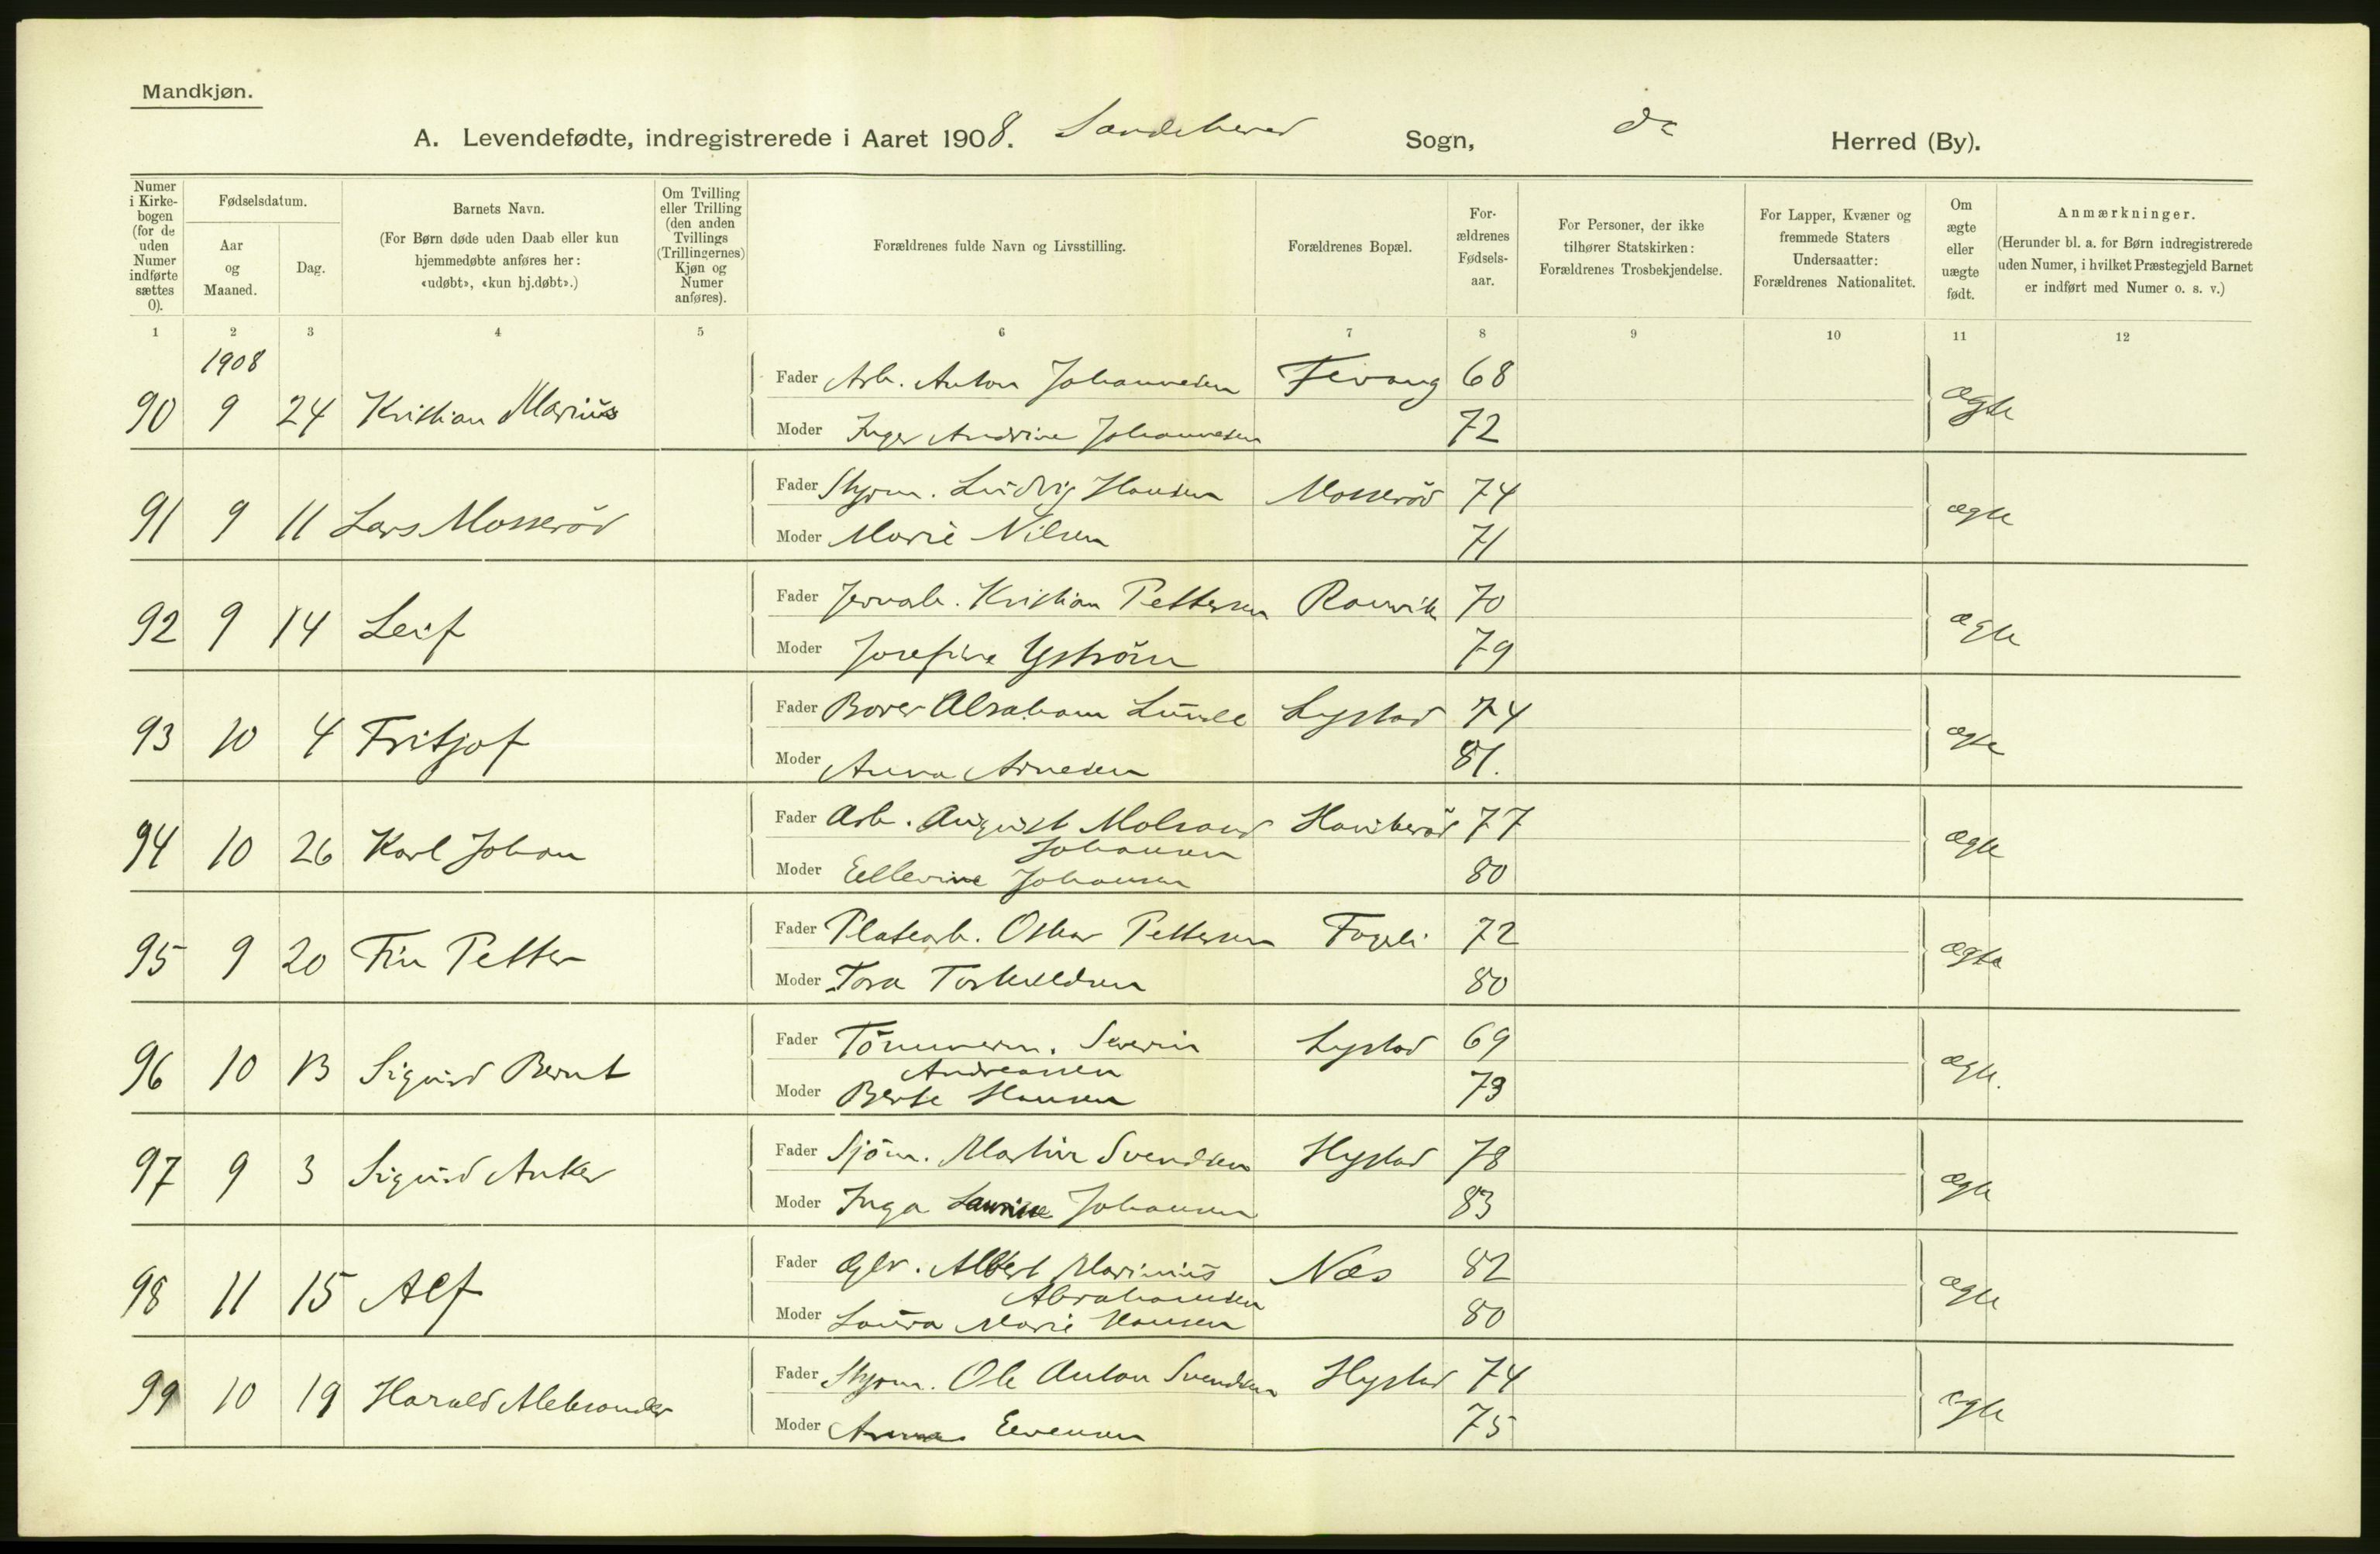 Mandkjøn.
A. Levendefødte, indregistrerede i Aaret 1908. Sandeherred Sogn, do Herred (By).
Numer i Kirkebogen (for de uden Numer indførte sættes 0).
Fødselsdatum.
Aar og Maaned.
Dag.
Barnets Navn.
(For Børn døde uden Daab eller kun hjemmedøbte anføres her: «udøbt», «kun hj.døbt».)
Om Tvilling eller Trilling (den anden Tvillings (Trillingernes) Kjøn og Numer anføres).
Forældrenes fulde Navn og Livsstilling.
Forældrenes Bopæl.
Forældrenes Fødselsaar.
For Personer, der ikke tilhører Statskirken: Forældrenes Trosbekjendelse.
For Lapper, Kvæner og fremmede Staters Undersaatter: Forældrenes Nationalitet.
Om ægte eller uægte født.
Anmærkninger.
(Herunder bl. a. for Børn indregistrerede uden Numer, i hvilket Præstegjeld Barnet er indført med Numer o. s. v.)
1 2 3 4 5 6 7 8 9 10 11 12
1908
90 9 24 Kristian Marius Fader Arb. Anton Johannesen Fevang 68 ægte
Moder Inger Andrine Johannesen 72
91 9 11 Lars Mosseröd Fader Styrm. Ludvig Hansen Mosseröd 74 ægte
Moder Marie Nilsen 71
92 9 14 Leif Fader Jernarb. Kristian Pettersen Ranvik 70 ægte
Moder Josefine Yström 79
93 10 4 Fritjof Fader Borer Abraham Lunde Lystad 74 ægte
Moder Anna Arnesen 81.
94 10 26 Karl Johan Fader Arb. August Molraud 77 ægte
Johansen
Moder Ellevine Johansen 80
95 9 20 Fin Petter Fader Platearb. Oskar Pettersen 72 ægte
Moder Tora Torkildsen 80
96 10 13 Sigurd Bernt Fader Tömmerm. Severin Lystad 69 ægte.
Andreassen
Moder Berte Hansen 73
97 9 3 Sigurd Anker Fader Sjöm. Martin Svendsen Hystad 78 ægte
Moder Inga Laurine Johansen 83
98 11 15 Alf Fader Albert Marinius Næs 82 ægte
Abrahamsen
Moder Laura Marie Hansen 80
99 10 19 Harald Aleksander Fader Styrm. Ole Anton Svendsen Hystad 74 ægte
Moder Anna Evensen 75